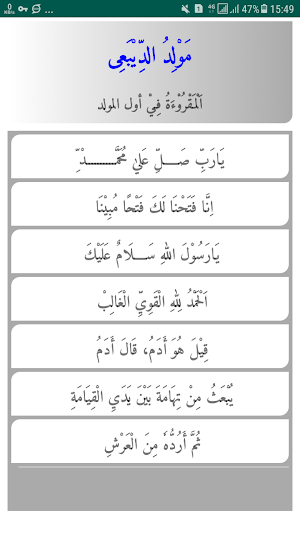 0
KB/s
4G
51% 15:49
مَوْلِدُ الدِّيْبَعِى
اَلْمَقْرُوْءَةُ فِيْ أول المولد
يَارَبِّ صَـــلِّ عَلىٰ مُحَمَّـــــــــدْ
اِنَّا فَتَحْنَا لَكَ فَتْحًا مُبِيْنَا
يَارَسُوْلَ اللهِ سَـــلَامٌ عَلَيْكَ
اَلْحَمْدُ لِلهِ الْقَوِيِّ الْغَالِبْ
قِيْلَ هُوَ أَدَمُ، قَالَ أَدَمُ
يُبْعَثُ مِنْ تِهَامَةَ بَيْنَ يَدَيِ الْقِيَامَةِ
ثُمَّ أَرُدُّهُ مِنَ الْعَرْشِ